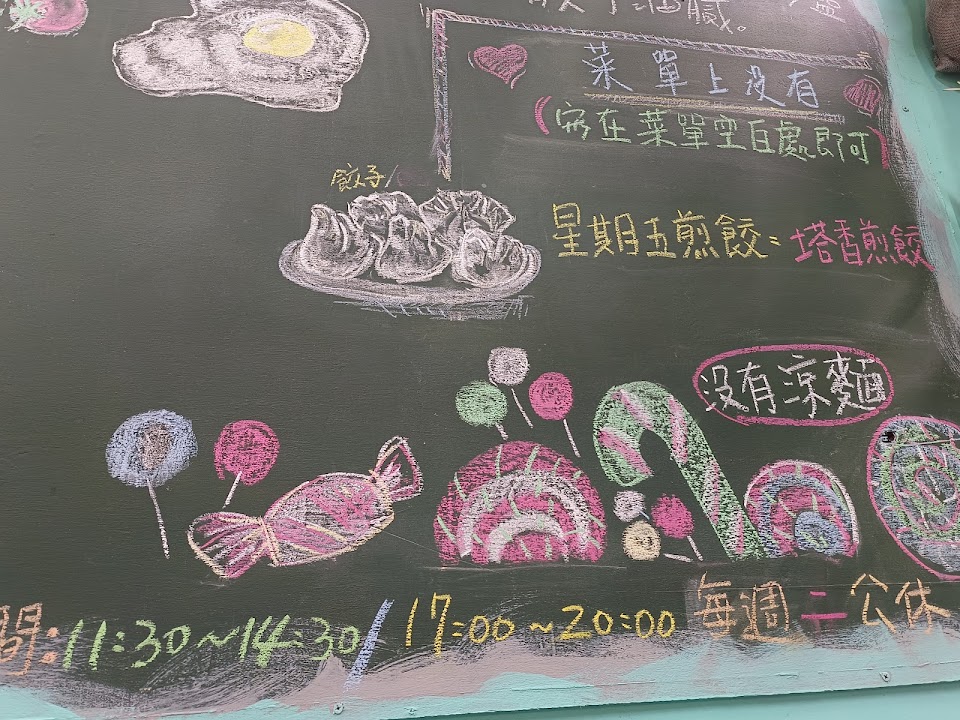 菜單上沒有
(寫在菜單空白處即可)
餃子/
星期五煎餃=塔香煎餃
沒有涼麵
間:11:30~14:30/17:00~20:00 每週二公休